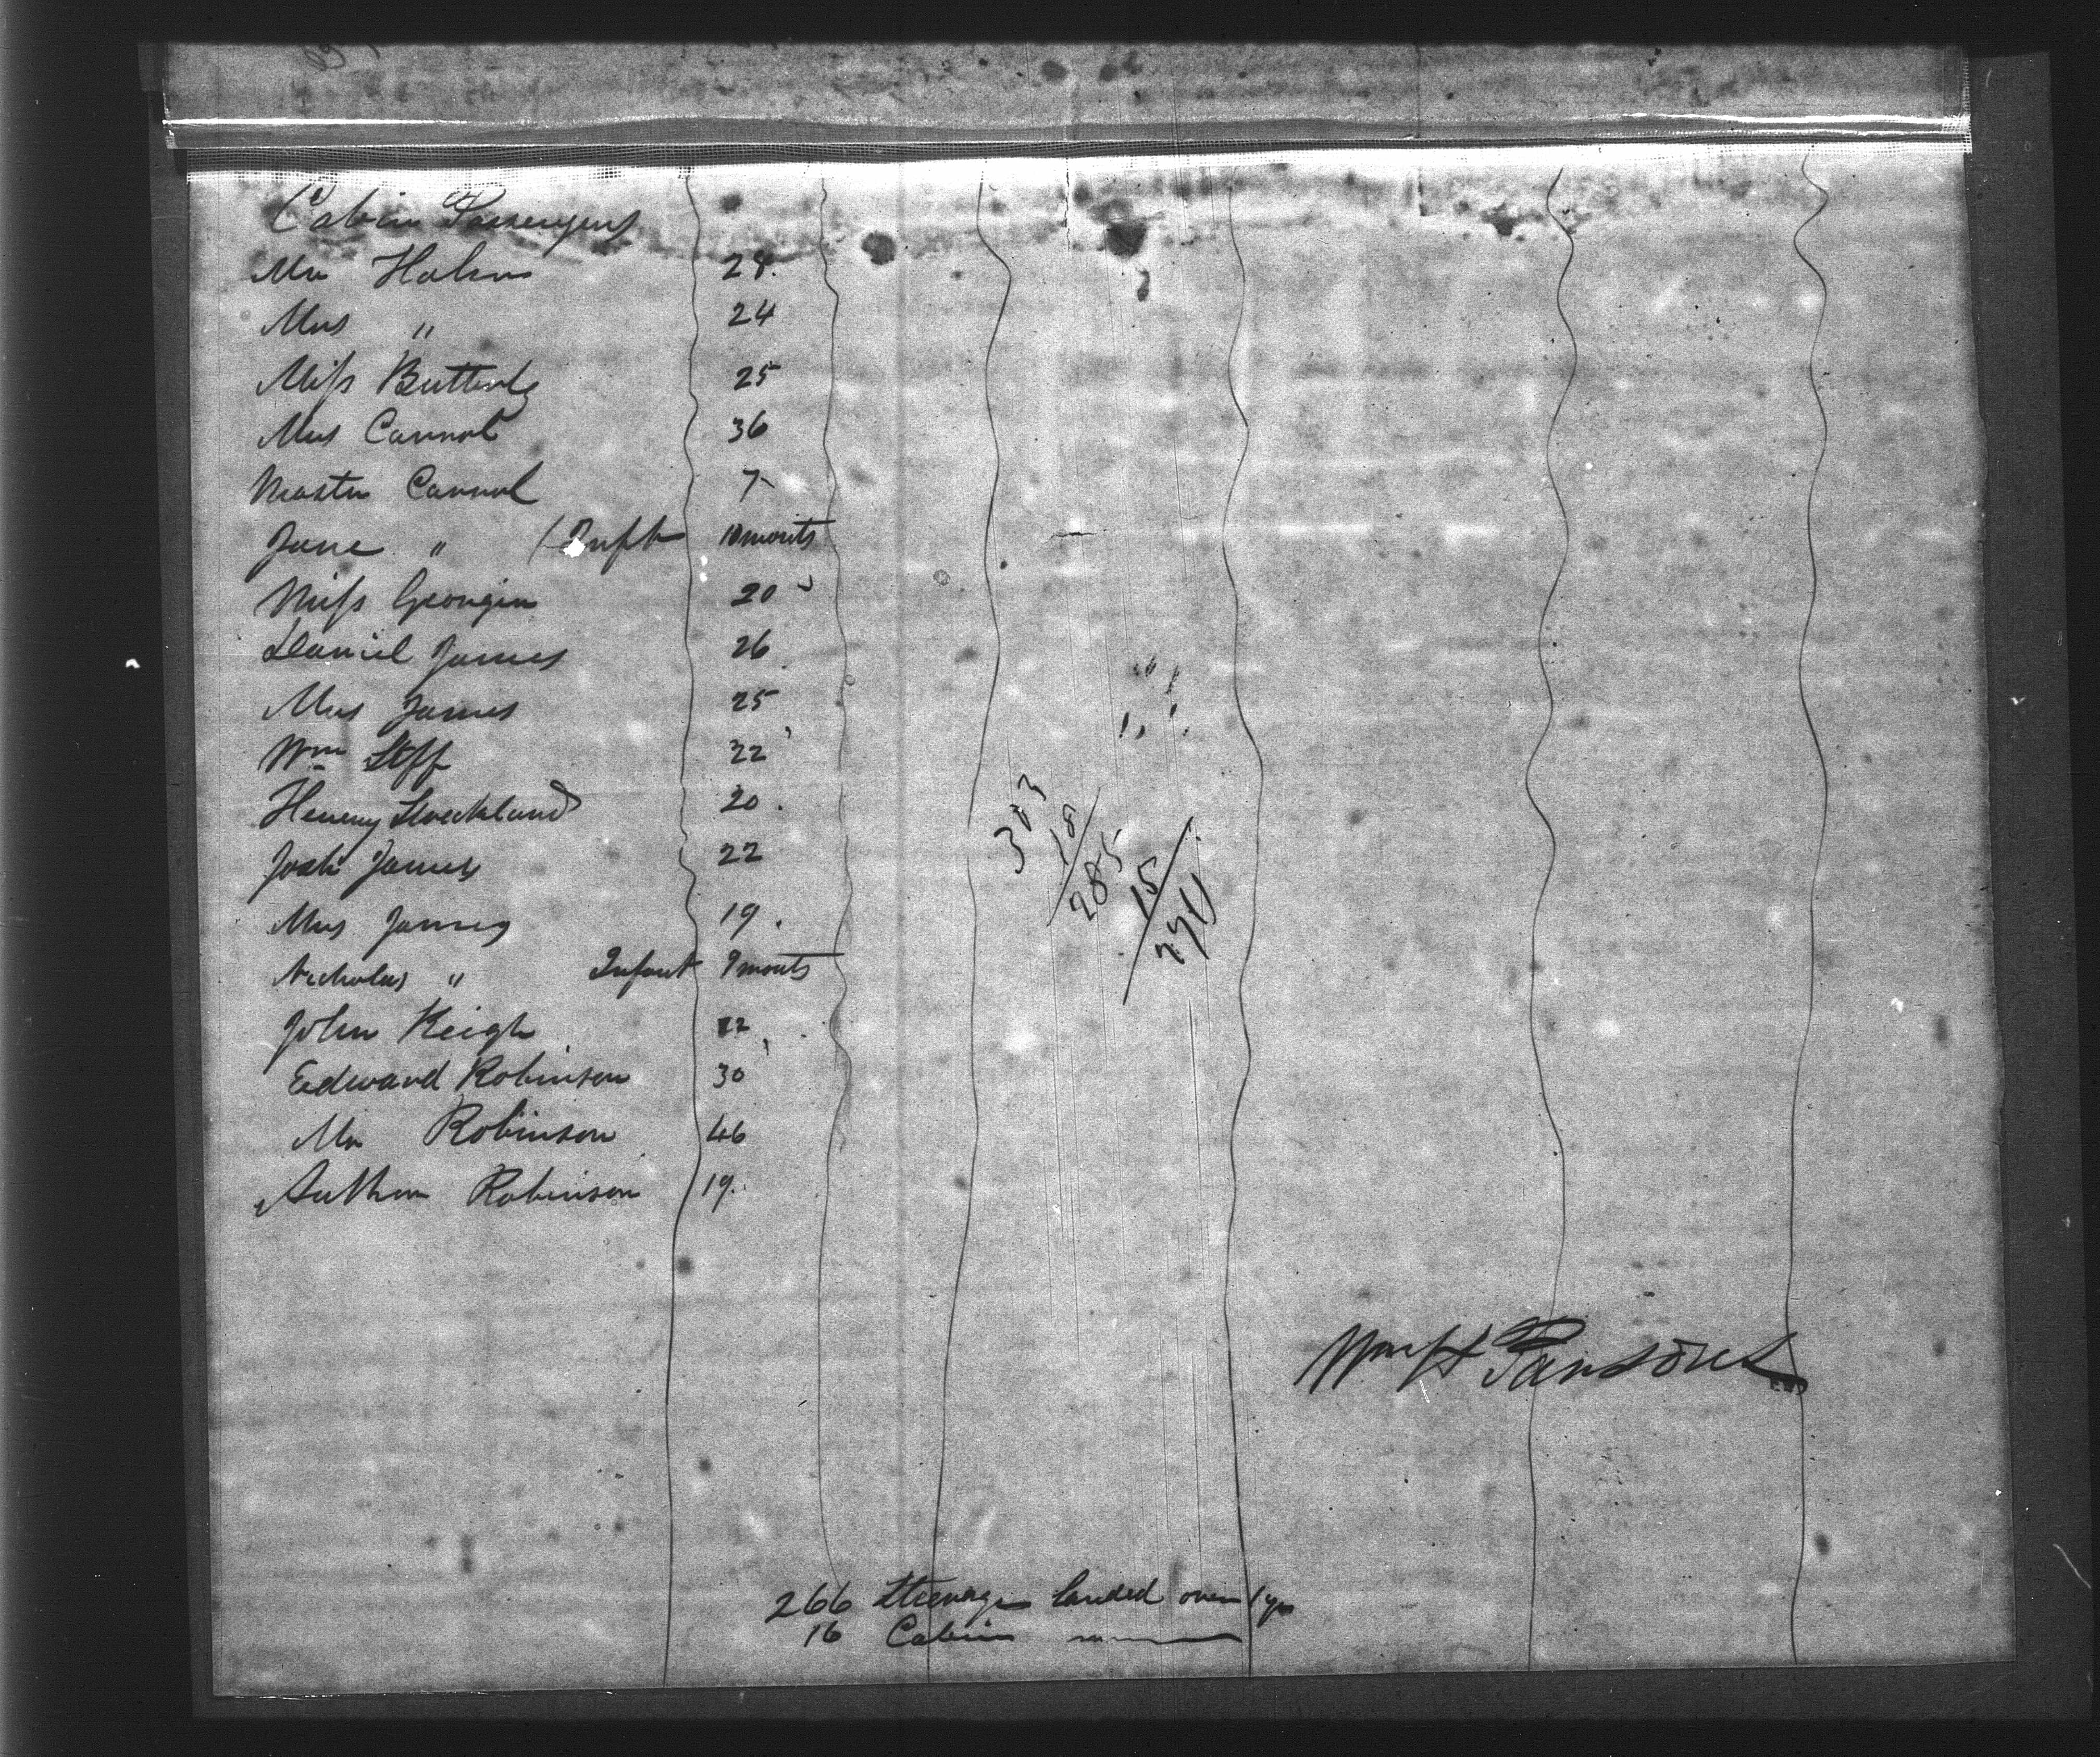 Cabin Passengers
Mr Holm 28.
Mrs " 24
Miss Butterly 25
Mrs Cannol 36
Master Cannol 7
Jane " (Inft 10 monts
Miss Georgin 20
Daniel James 26
Mrs James 25
Wm Stff 22
Henery Strekland 20.
Josh James 22
Mrs James 19.
Nicholas " Infant 9 monts
John Keigh 22
Edward Robinson 30
Mr Robinson 46
Authur Robinson 19.
303
18
285
15
270
Wm H Parsons
266 Steerage landed over 1 yr
16 Cabin